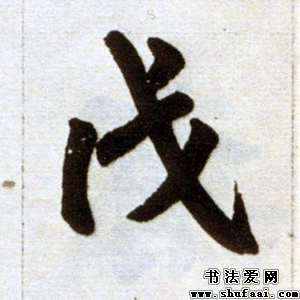 戊
书法爱网
www.shufaai.com